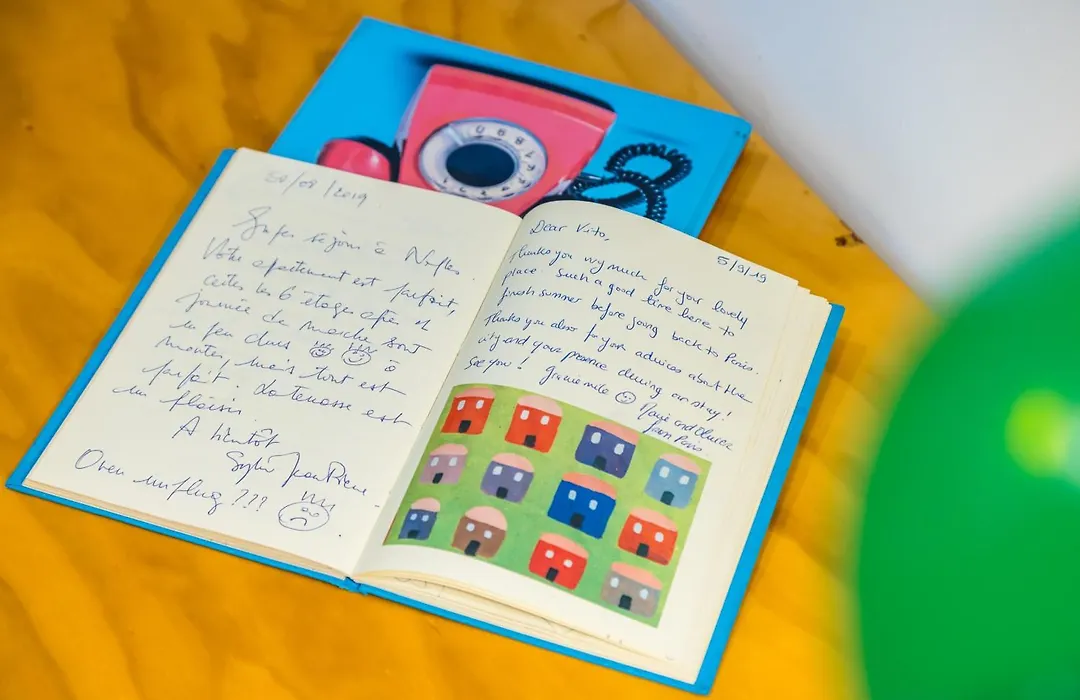 20/08/2019
Super séjour à Naples.
Votre apartement est parfait,
certes les 6 étages après 1
journée de marche sont
un peu durs à
monter, mais tout est
parfait. La terrasse est
un plaisir.
A bientôt
Sylvie Jean Pierre
Oven unplug ???
Dear Vito,
5/9/19
Thanks you very much for your lovely
place. Such a good time here to
finish summer before going back to Paris.
Thanks you also for your advices about the
city and your presence during our stay!
See you! Grazie mile Marie and
from Paris